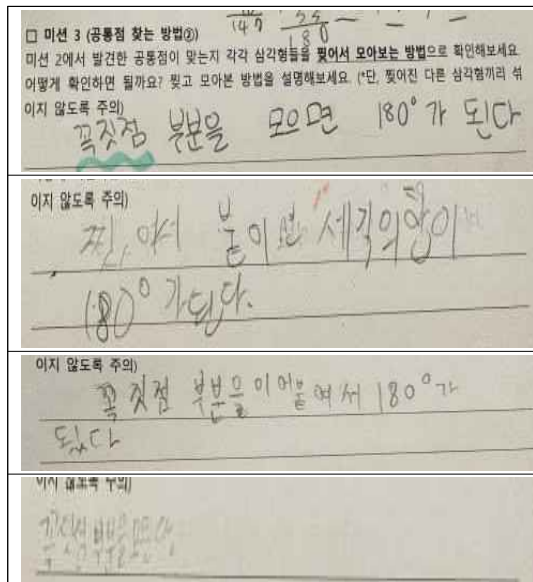 147 180
□ 미션 3 (공통점 찾는 방법②)
미션 2에서 발견한 공통점이 맞는지 각각 삼각형들을 찢어서 모아보는 방법으로 확인해보세요.
어떻게 확인하면 될까요? 찢고 모아본 방법을 설명해보세요. (*단, 찢어진 다른 삼각형끼리 섞
이지 않도록 주의)
꼭짓점 부분을 모으면 180°가 된다
이지 않도록 주의)
붙이면 세각의합이
180°가된다.
이지 않도록 주의)
꼭짓점 부분을이어붙여서 180°가
됬다
이지 않도록 주의)